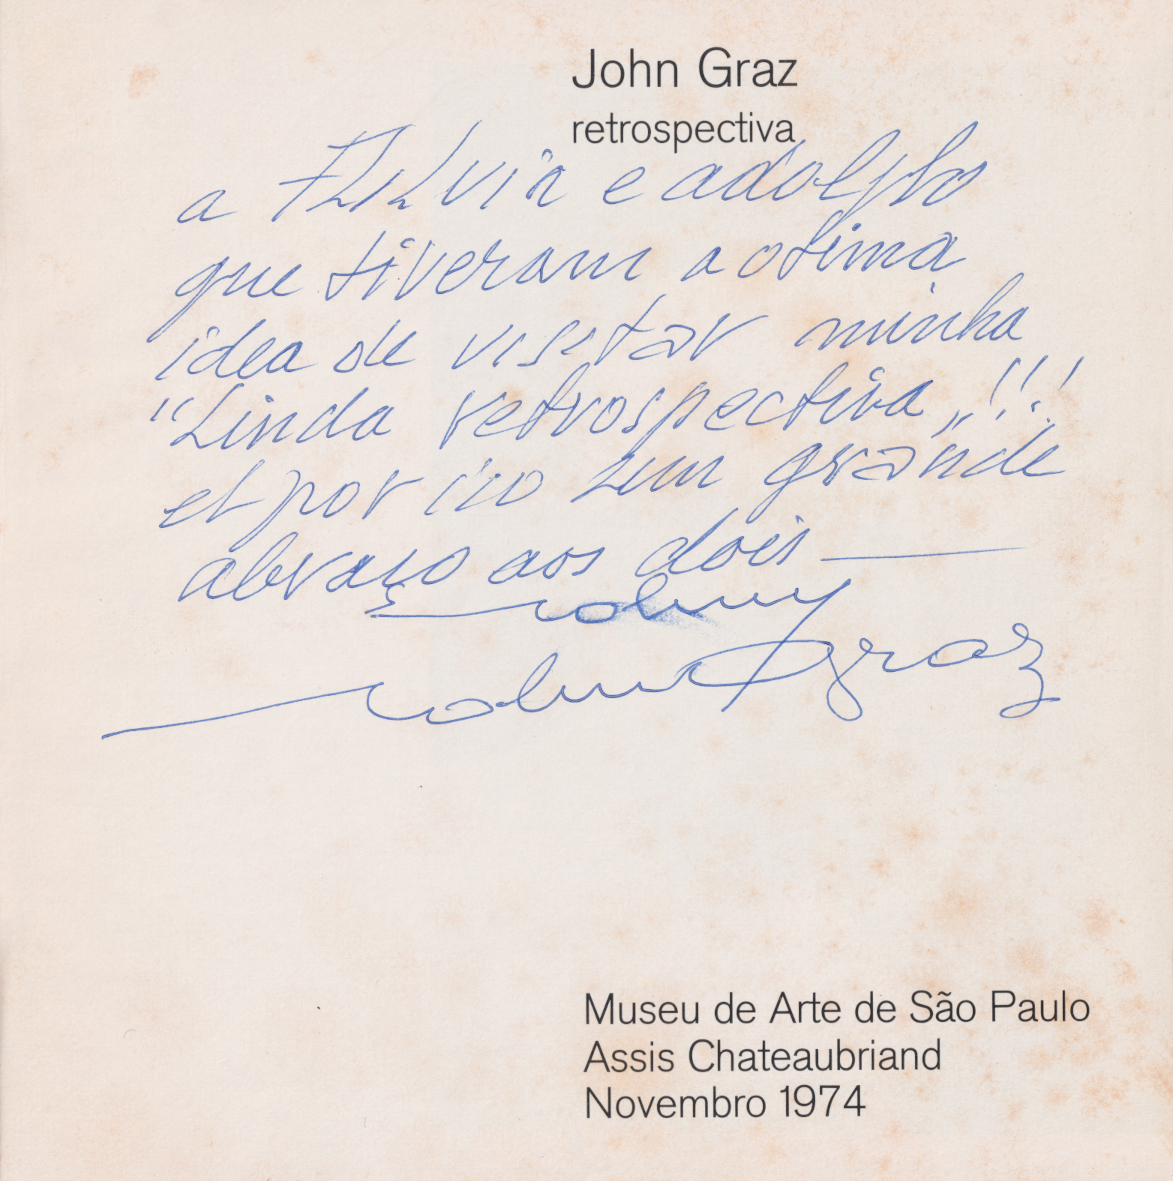 John Graz
retrospectiva
a Fulvia e adolpho
que tiveram a otima
idea de visitar minha
"Linda retrospectiva„!!!
et por iço um grande
abraço aos dois —
Johnny
John Graz
Museu de Arte de São Paulo
Assis Chateaubriand
Novembro 1974